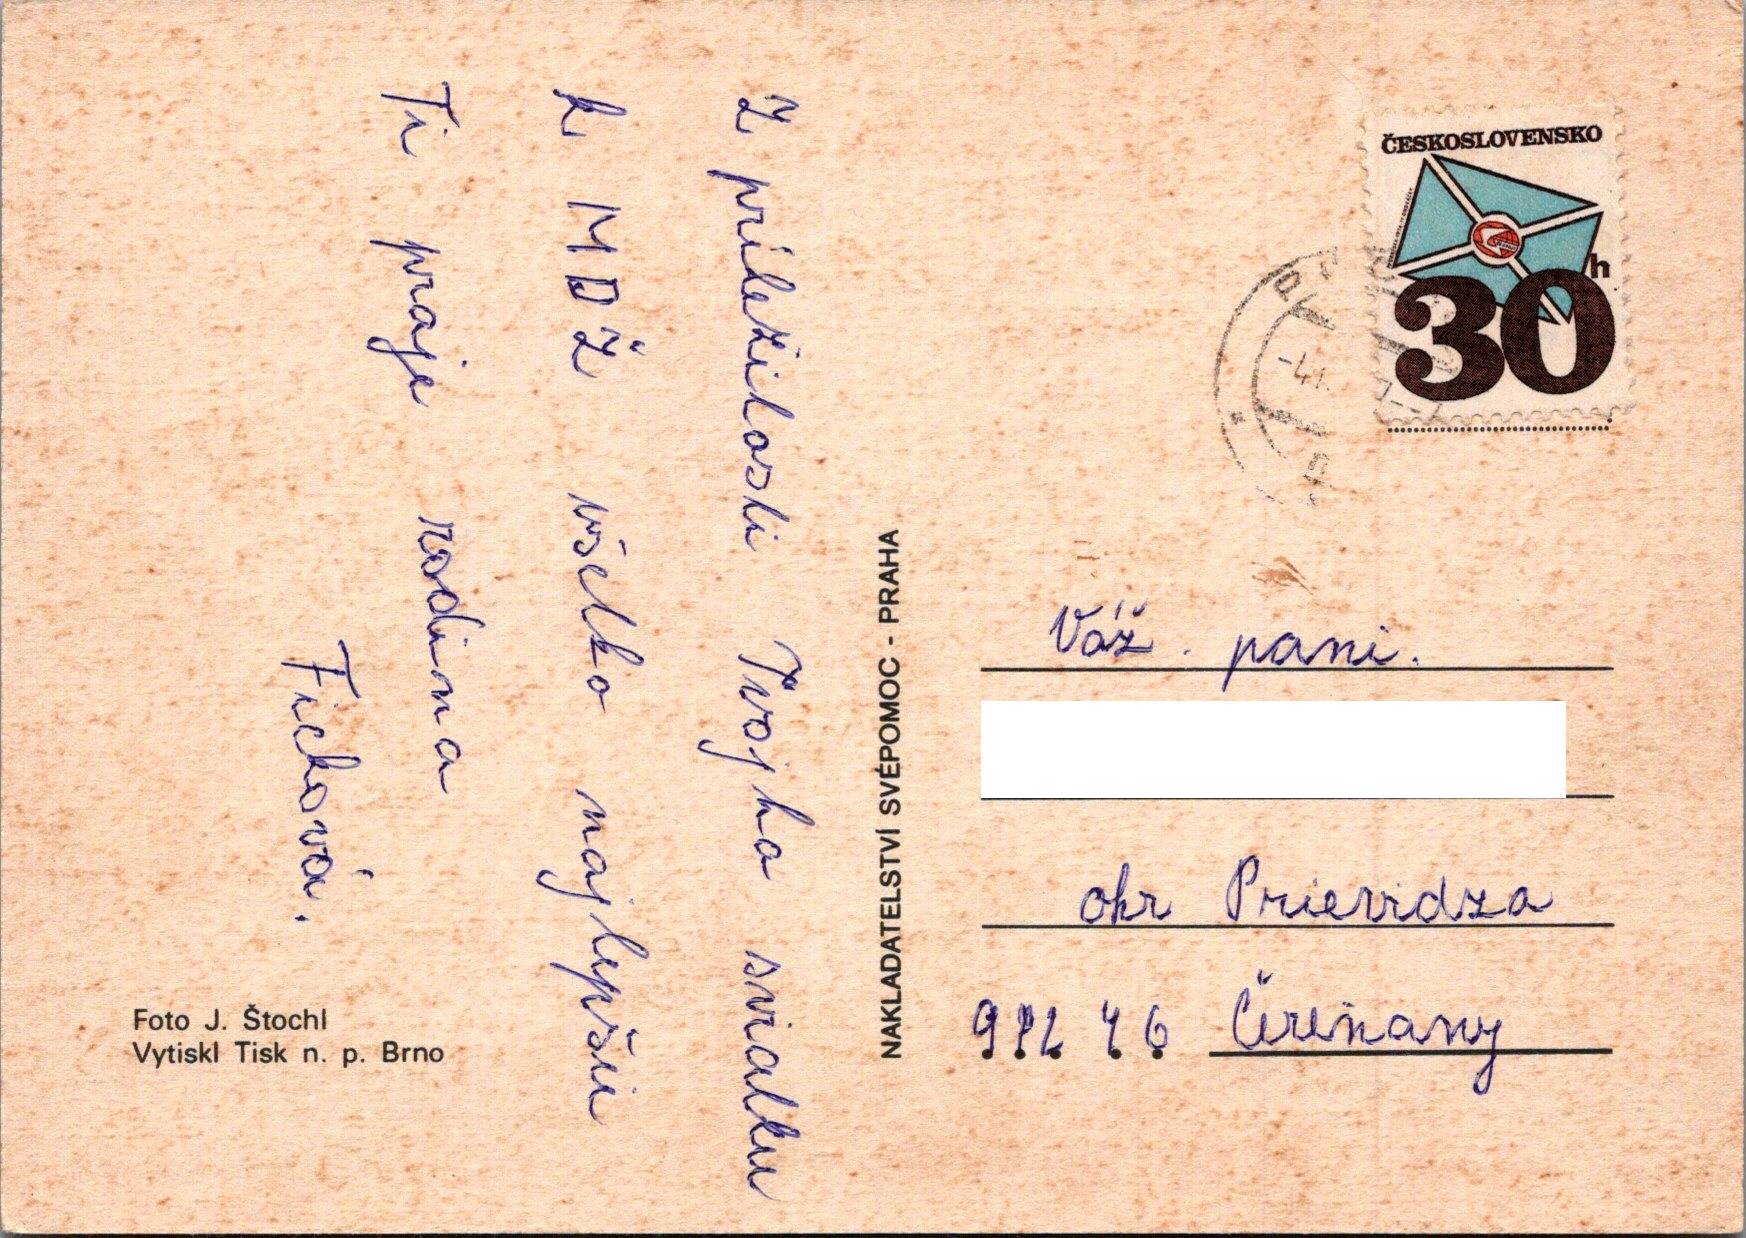 Z príležitosti Tvojho sviatku
k MDŽ všetko najlepší
Ti praje rodina
Ficková.
Foto J. Štochl
Vytiskl Tisk n. p. Brno
NAKLADATELSTVÍ SVÉPOMOC - PRAHA
ČESKOSLOVENSKO
30h
-4.
Váž. pani.
okr Prievidza
972 46 Čereňany